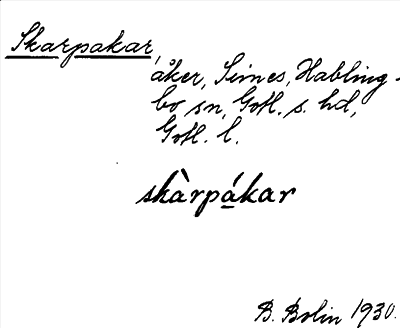 Skarpakar,
åker, Simes, Habling-
bo sn, Gotl. s. hd,
Gotl. l.
skàrpákar
B. Bolin 1930.